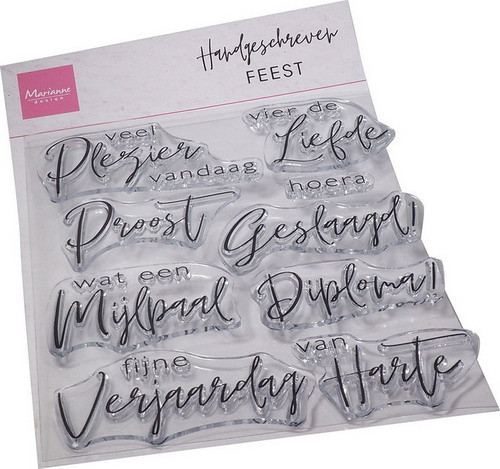 Marianne
design
Handgeschreven
FEEST
veel
Plezier
vandaag
vier de
Liefde
hoera
Proost
Geslaagd!
wat een
Mijlpaal
Diploma!
fijne
Verjaardag
van
Harte